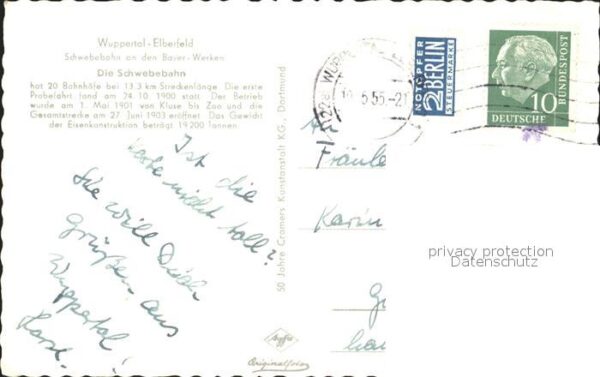 Wuppertal - Elberfeld
Schwebebahn an den Bayer-Werken
Die Schwebebahn
hat 20 Bahnhöfe bei 13,3 km Streckenlänge. Die erste
Probefahrt fand am 24. 10. 1900 statt. Der Betrieb
wurde am 1. Mai 1901 von Kluse bis Zoo und die
Gesamtstrecke am 27. Juni 1903 eröffnet. Das Gewicht
der Eisenkonstruktion beträgt 19200 Tonnen.
Ist die
Karte nicht toll?
Sie will Dich
grüßen aus
Wuppertal!
50 Jahre Cramers Kunstanstalt KG., Dortmund
Agfa
Originalfoto
5.55.-21
NOTOPFER
2 BERLIN
STEUERMARKE
10
DEUTSCHE
BUNDESPOST
Fräule
Karin
privacy protection
Datenschutz